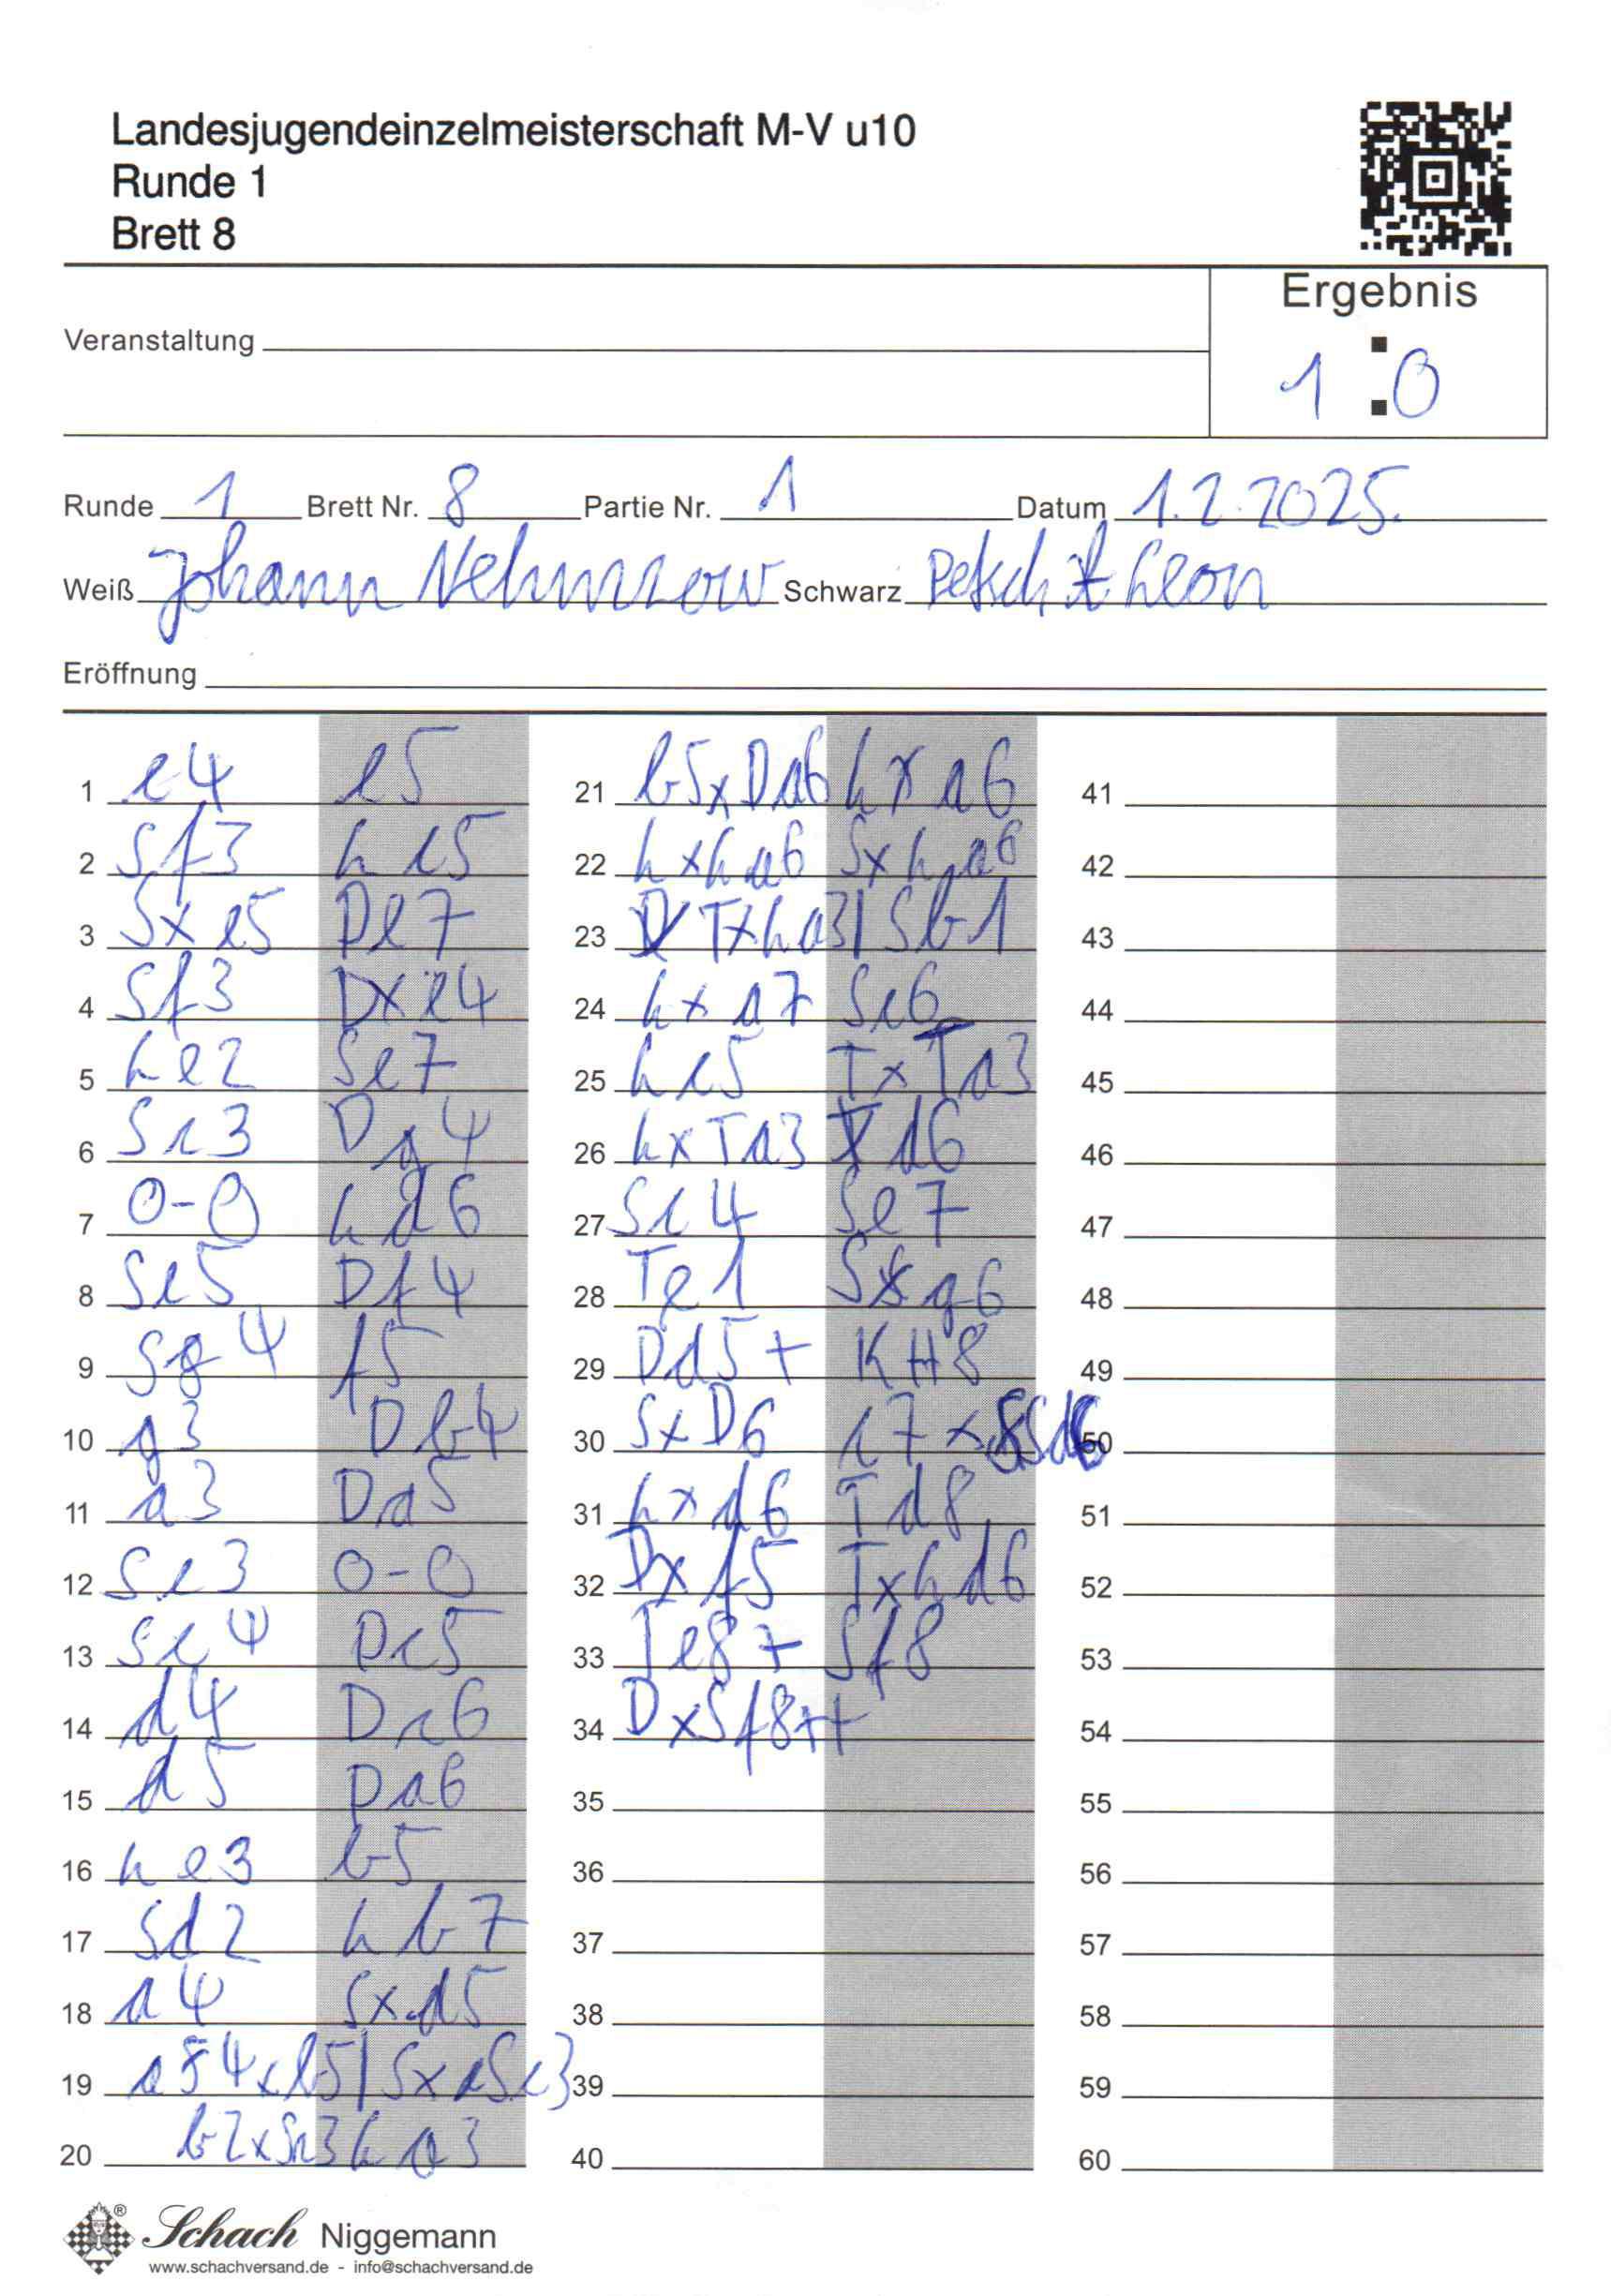 Landesjugendeinzelmeisterschaft M-V u10
Runde 1
Brett 8
Ergebnis
Veranstaltung
1 : 0
Runde 1 Brett Nr. 8 Partie Nr. 1 Datum 1.2.2025.
Weiß Johann Nehmzow Schwarz Petsch Leon
Eröffnung
1 e4 e5
2 Sf3 Lc5
3 Sxe5 De7
4 Sf3 Dxe4
5 Le2 Se7
6 Sc3 Dg4
7 0-0 Ld6
8 Se5 Df4
9 Sg4 f5
10 g3 Db4
11 a3 Da5
12 Se3 0-0
13 Sc4 Dc5
14 d4 Dc6
15 d5 Da6
16 Le3 b5
17 Sd2 Lb7
18 a4 Sxd5
19 a4xb5 | SxSc3
20 b2xSc3 La3
21 b5xDa6 Lxa6
22 LxLa6 SxLa6
23 TxLa3 | Sb1
24 Lxa7 Sc6
25 Lc5 TxTa3
26 LxTa3 d6
27 Sc4 Se7
28 Te1 Sg6
29 Dd5+ KH8
30 SxD6 c7xSd6
31 Lxd6 Td8
32 Dxf5 TxLd6
33 Te8+ Sf8
34 DxSf8++
35
36
37
38
39
40
41
42
43
44
45
46
47
48
49
50
51
52
53
54
55
56
57
58
59
60
® Schach Niggemann
www.schachversand.de - info@schachversand.de